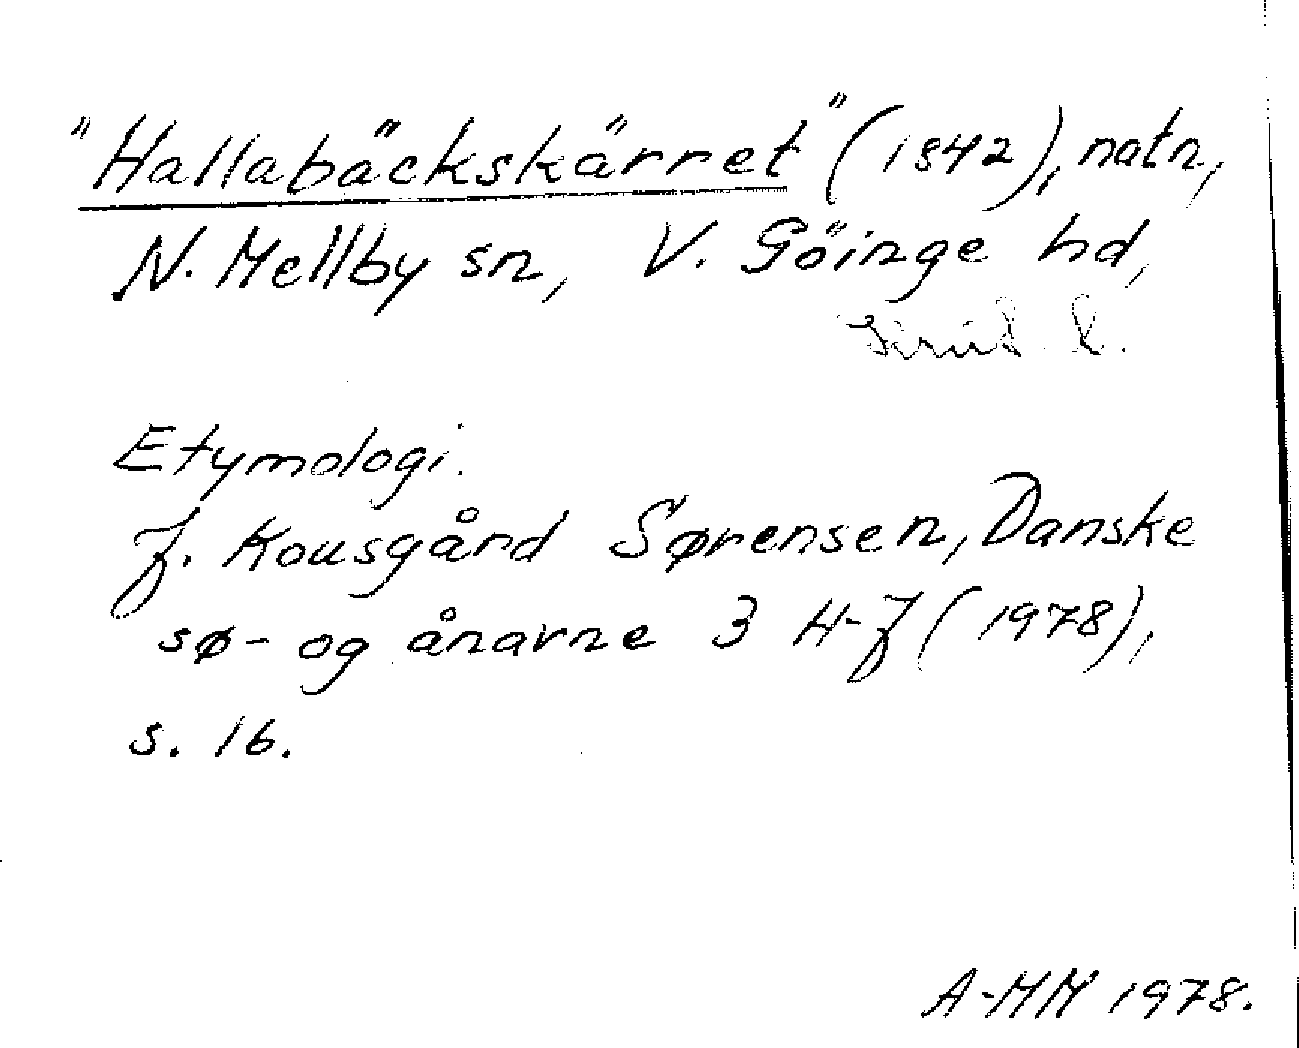 "Hallabäckskärret" (1842), natn,
N. Mellby sn, V. Göinge hd,
Krist. l.
Etymologi.
J. Kousgård Sørensen, Danske
sø- og ånavne 3 H-J (1978),
s. 16.
A-MM 1978.